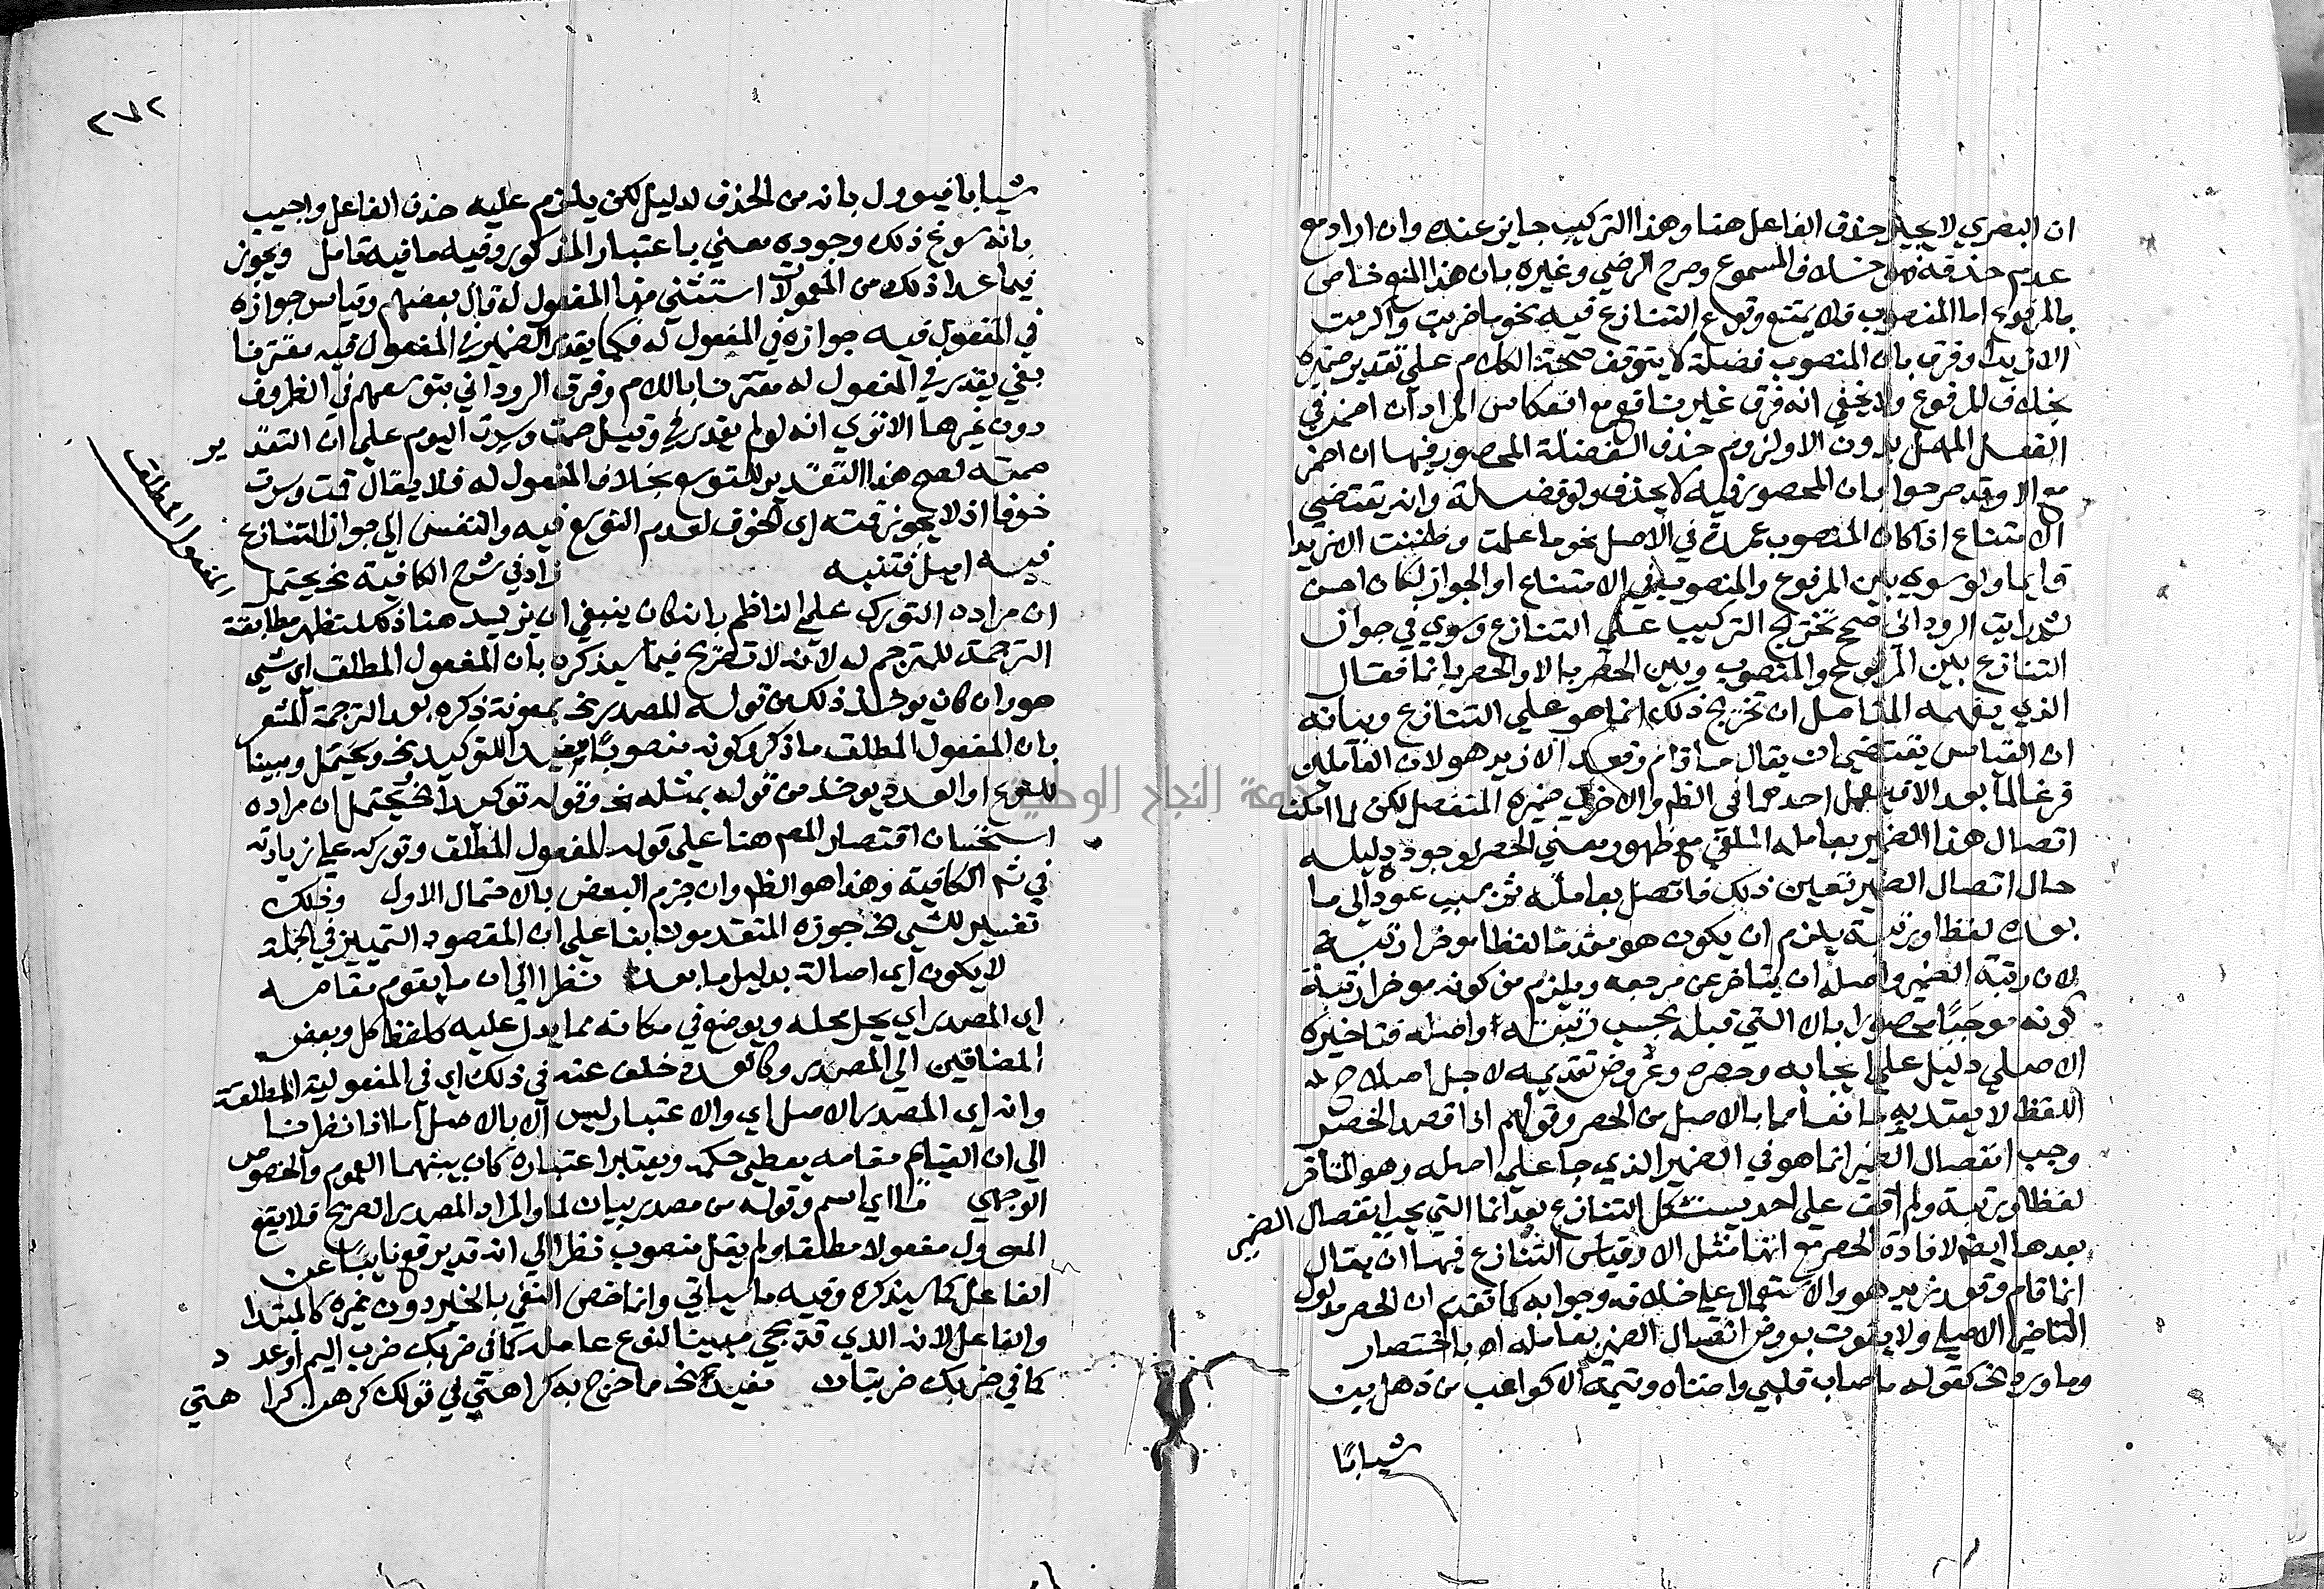 ان البصري لا يجيز حذف الفاعل هنا وهذا التركيب جايز عنده وان اراد مع
عدم حذفه فهو خلاف المسموع وصرح الرضي وغيره بان هذا المنع خاص
بالمرفوع اما المنصوب فلا يمتنع وقوع التنازع فيه نحو ما ضربت واكرمت
الا زيدا وفرق بان المنصوب فضلة لا يتوقف صحة الكلام علي تقدير ضميره
بخلاف المرفوع ولا يخفي انه فرق غير نافع مع انعكاس المراد ان اضمر في
الفعل المهمل بدون الا ولزوم حذف الفضلة المحصور فيها ان اضمر
مع الا وقد صرحوا بان المحصور فيه لا يحذف ولو فضلة وانه يقتضي
الامتناع اذا كان المنصوب عمدة في الاصل نحو ما علمت وظننت الا زيدا
قايما ولو سوي بين المرفوع والمنصوب في الامتناع او الجواز لكان احسن
ثم رايت الروداني صحح تخريج التركيب علي التنازع وسوي في جواز
التنازع بين المرفوع والمنصوب وبين الحصر بالا والحصر بانما فقال
الذي يفهمه المتامل ان تخريج ذلك انما هو علي التنازع وبيانه
ان القياس يقتضي ان يقال ما قام وقعد الا زيد هو لان العاملين
فرغا لما بعد الا فيعمل احدهما في الظم والاخر في ضميره المنفصل لكن لما امكن
اتصال هذا الضمير بعامله الملقي مع ظهور معني الحصر لوجود دليله
حال اتصال الضمير تعين ذلك فاتصل بعامله ثم بسبب عوده الي ما
بعده لفظا ورتبة يلزم ان يكون هو مقدما لفظا موخرا رتبة
لان رتبة الضمير واصله ان يتاخر عن مرجعه ويلزم من كونه موخرا رتبة
كونه موجبًا محصورا بالا التي قبله بحسب رتبته واصله فتاخيره
الاصلي دليل علي ايجابه وحصره وعروض تقديمه لاجل اصلاح
اللفظ لا يعتد به مانعا مما بالاصل من الحصر وقولهم اذا قصد الحصر
وجب انفصال الضمير انما هو في الضمير الذي جا علي اصله وهو المتاخر
لفظا ورتبة ولم اقف علي احد يستشكل التنازع بعد انما التي يجب انفصال الضمير
بعدها ايضا لافادة الحصر مع انها مثل الا وقياس التنازع فيها ان يقال
انما قام وقعد زيد هو والاستعمال علي خلافه وجوابه كما تقدم ان الحصر مدلول
التاخير الاصلي ولا يفوت بعروض اتصال الضمير بعامله اه باختصار
وما ورد الخ كقوله ما صاب قلبي واضناه وتيمه الا كواعب من ذهل بن
شيبانًا
٢٧٢
شيبانا فيوول بانه من الحذف لدليل لكن يلزم عليه حذف الفاعل واجيب
بانه سوغ ذلك وجوده معني باعتبار المذكور وفيه ما فيه تامل ويجوز
فيما عدا ذلك من المعمولات استثني منها المفعول له قال بعضهم وقياس جوازه
في المفعول فيه جوازه في المفعول له فكما يقدر الضمير في المفعول فيه مقترنا
بفي يقدر في المفعول له مقترنا باللام وفرق الروداني بتوسعهم في الظروف
دون غيرها الا تري انه لو لم يقدر في وقيل صمت وسرت اليوم علي ان التقدير
صمته لصح هذا التقدير للتوسع بخلاف المفعول له فلا يقال قمت وسرت
خوفا اذ لا يجوز قمته اي الخوف لعدم التوسع فيه والنفس الي جواز التنازع
فيه اميل فتنبه زاد في شرح الكافية الخ يحتمل
المفعول المطلق
ان مراده التورك علي الناظم بانه كان ينبغي ان يزيد هنا ذلك لتظهر مطابقة
الترجمة للمترجم له لانه لا تصريح فيما سيذكره بان المفعول المطلق اي شي
هو وان كان يوخذ ذلك من قوله المصدر الخ بمعونة ذكره بعد الترجمة المشعر
بان المفعول المطلق ما ذكر وكونه منصوبًا مفيدا للتوكيد الخ ويحتمل ومبينا
للنوع او العدد يوخذ من قوله بمثله الخ وقوله توكيدا الخ ويحتمل ان مراده
استحسان اقتصار المص هنا علي قوله المفعول المطلق وتوركه علي زيادته
في شر الكافية وهذا هو الظم وان جزم البعض بالاحتمال الاول وذلك
تفسير للشي الخ جوزه المتقدمون بنا علي ان المقصود التمييز في الجملة
لا يكون اي اصالة بدليل ما بعده نظرا الي ان ما يقوم مقامه
اي المصدر اي يحل محله ويوضع في مكانه مما يدل عليه كلفظ كل وبعض
المضافين الي المصدر وكالعدد خلف عنه في ذلك اي في المفعولية المطلقة
وانه اي المصدر الاصل اي والاعتبار ليس الا بالاصل اما اذا نظرنا
الي ان القيام مقامه يعطي حكمه ويعتبر اعتباره كان بينهما العموم والخصوص
الوجهي ما اي اسم وقوله من مصدر بيان لما والمراد المصدر الصريح فلا يقع
المؤول مفعولا مطلقا ولم يقل منصوب نظرا الي انه قد يرفع نايبًا عن
الفاعل كما سيذكره وفيه ما سياتي وانما خص النفي بالخبر دون غيره كالمبتدا
والفاعل لانه الذي قد يجي مبينا لنوع عامله كما في ضربك ضرب اليم او عدد
كما في ضربك ضربتان مفيد الخ ما خرج به كراهتي في قولك كرهت كراهتي